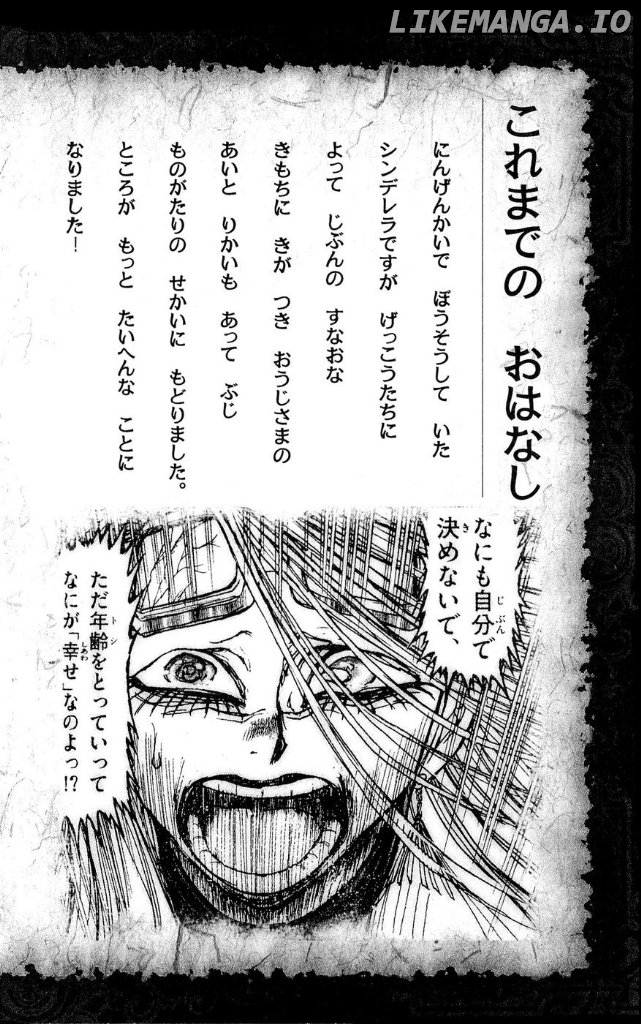 LIKEMANGA.IO
これまでの おはなし
にんげんかいで ぼうそうして いた
シンデレラですが げっこうたちに
よって じぶんの すなおな
きもちに きが つき おうじさまの
あいと りかいも あって ぶじ
ものがたりの せかいに もどりました。
ところが もっと たいへんな ことに
なりました!
なにも自分で
決めないで、
ただ年齢をとっていって
なにが「幸せ」なのよっ!?